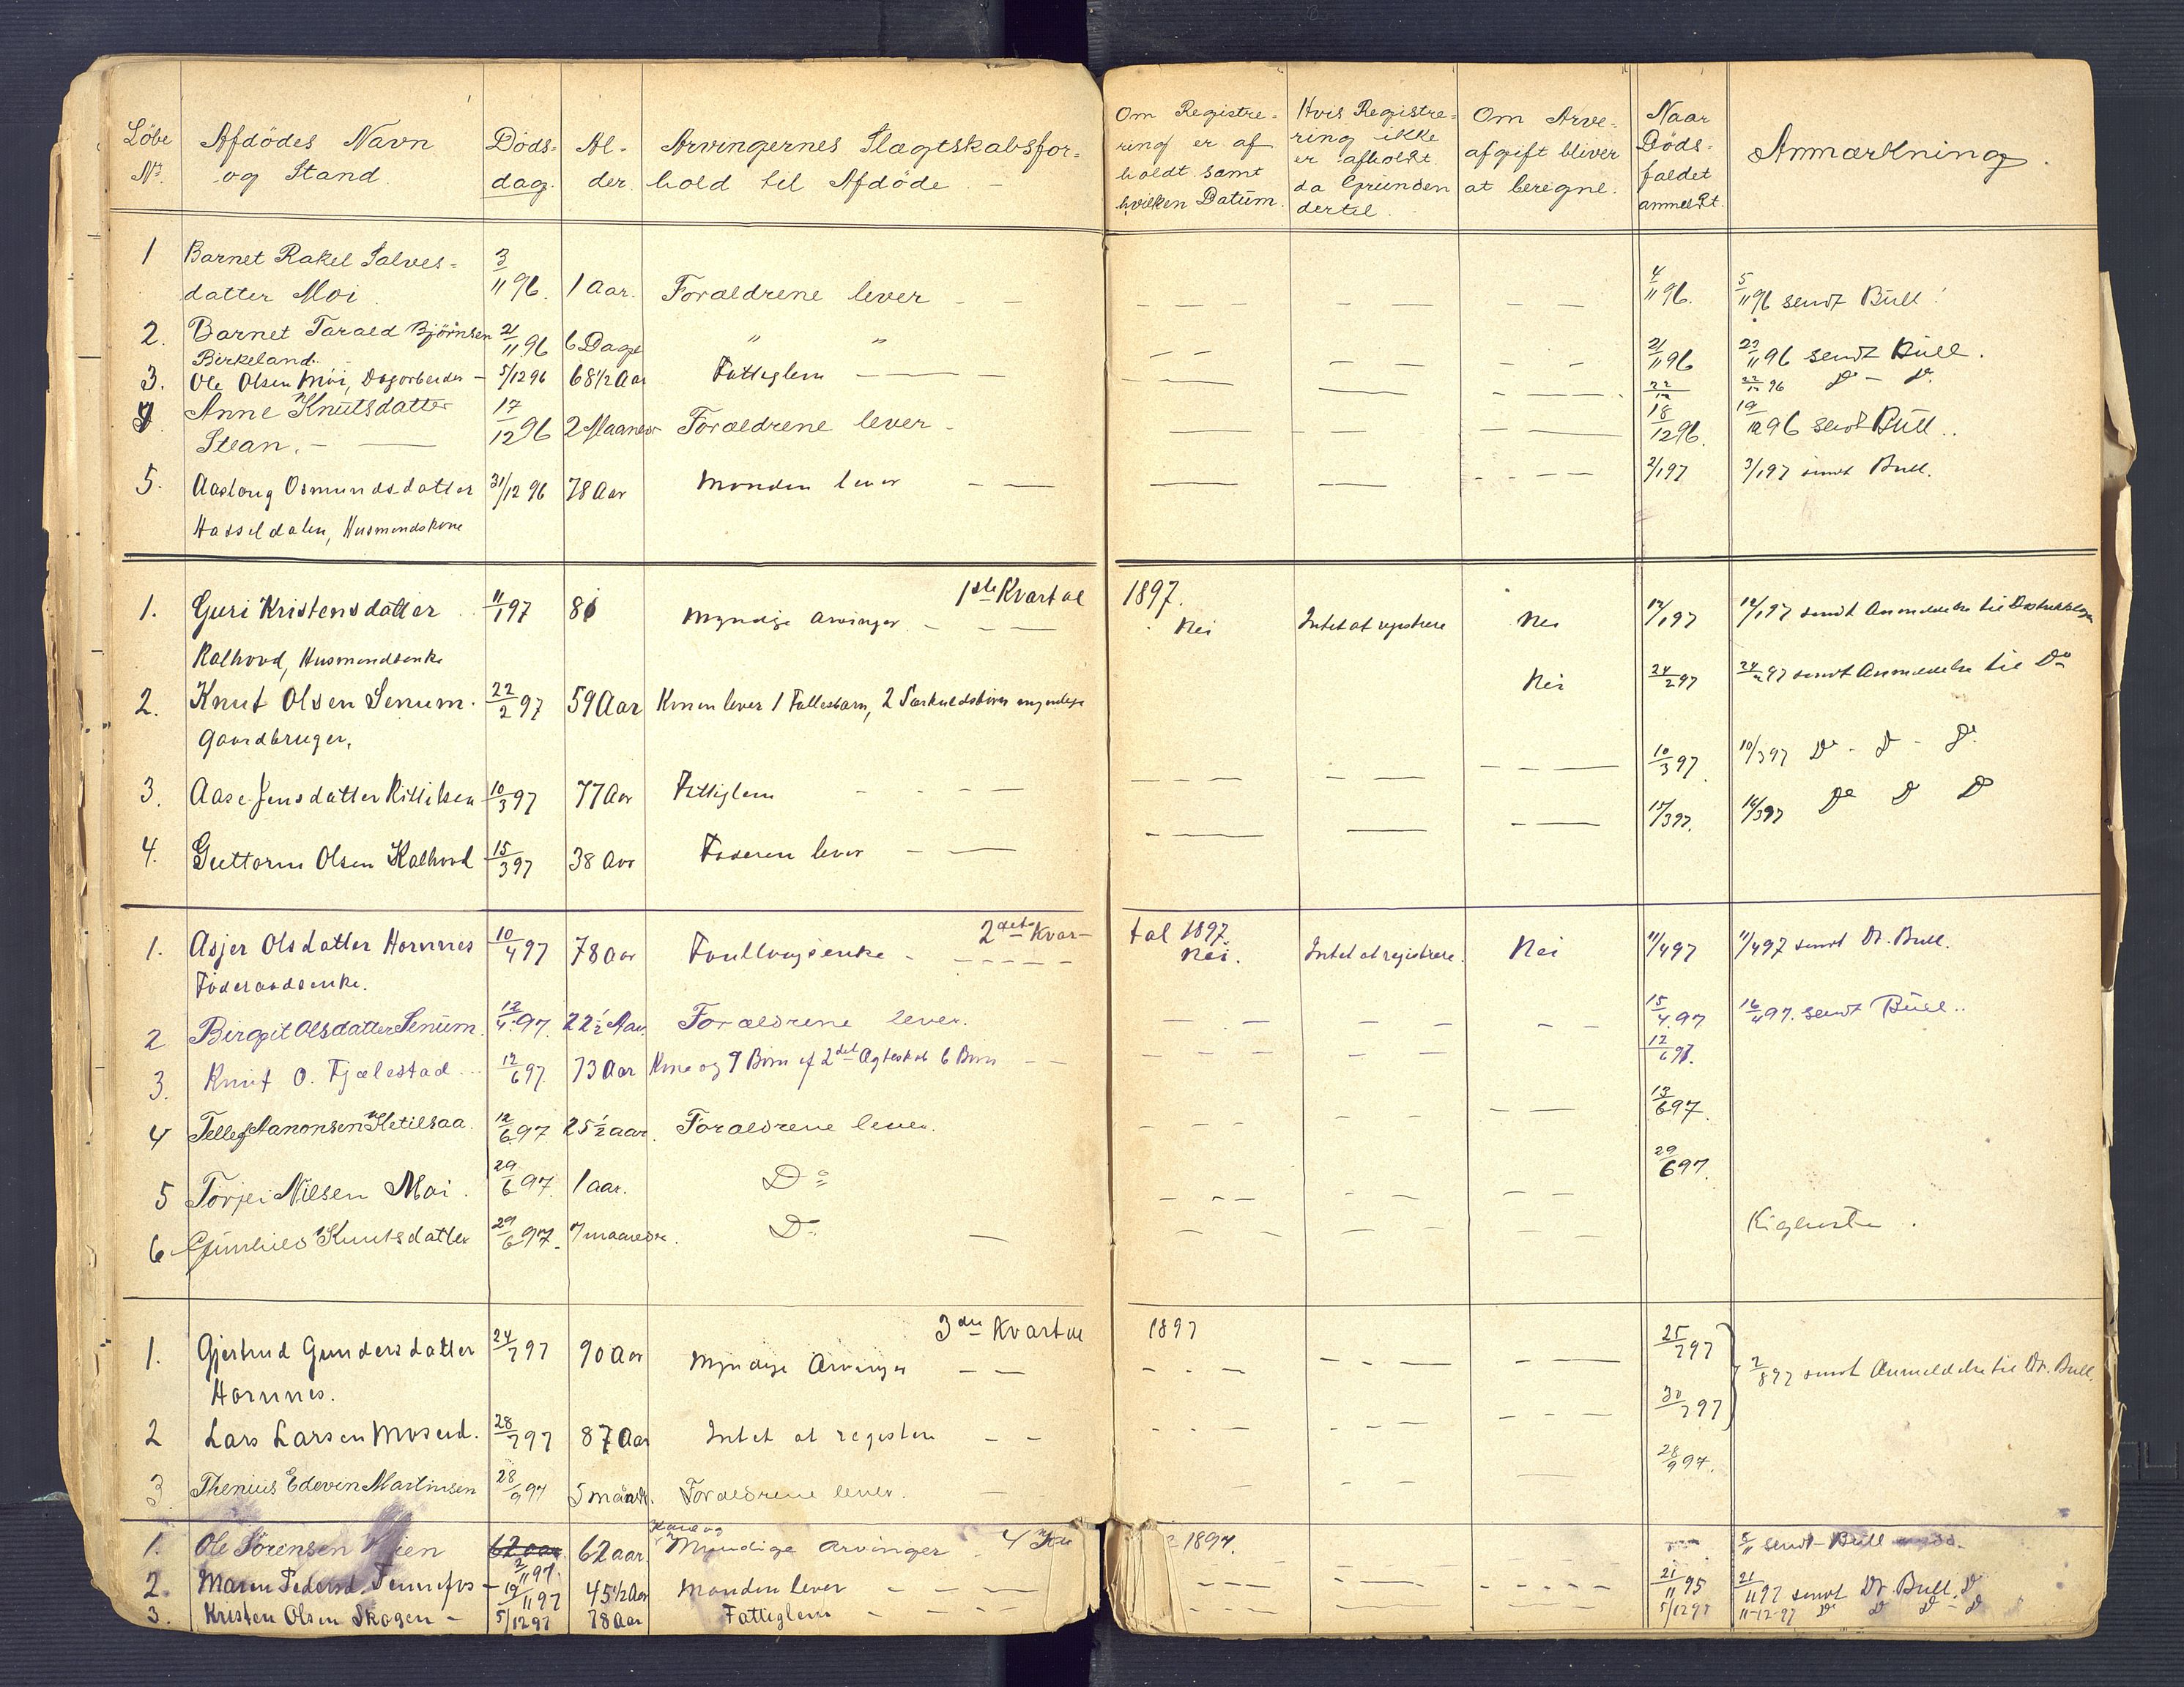 Löbe Nr. Afdödes Navn og Stand. Döds- dag. Al- der. Arvingernes Slægtskabsfor- hold til Afdöde Om Registre- ring er af holdt samt hvilken Datum. Hvis Registre- ring ikke er afholdt da Grunden dertil. Om Arve- afgift bliver at beregne. Naar Döds- faldet anmeldt. Anmærkning.
1 Barnet Rakel Salves- 3/11 96. 1 Aar. Forældrene lever — — 4/11 96. 5/11 96 sendt Bull.
datter Moi
2. Barnet Tarald Björnsen 21/11 96 6 Dage " " 21/11 96 23/11 96 sendt Bull.
Birkeland.
3. Ole Olsen Moi, Dagarbeider — 5/12 96 68 1/2 Aar Fattiglem — 22/12 22/12 96 Do — Do
4 Anne Knutsdatter 17/12 96 2 Maaneder Forældrene lever — 18/12 96. 19/12 96 sendt Bull..
Stean. —
5. Aaslaug Osmundsdatter 31/12 96 78 Aar Manden lever — — 2/1 97 3/1 97 sendt Bull.
Hasseldalen, Husmandskone
1ste Kvartal 1897.
1. Guri Kristensdatter 11/1 97 81 Myndige Arvinger — Nei Intet at registrere Nei 12/1 97 12/1 97 sendt Anmeldelse til
Kalhovd, Husmandsenke
2. Knut Olsen Senum. 22/2 97 59 Aar Konen lever 1 Fællesbarn, 2 Særkuldsbörn myndige Nei 24/2 97 24/2 97 sendt Anmeldelse til Do
Gaardbruger,
3. Aase Jensdatter 10/3 97 77 Aar Fattiglem — 10/3 97. 10/3 97 Do - Do - Do
4. Guttorm Olsen Kalhovd 15/3 97 38 Aar Faderen lever — 15/3 97. 16/3 97 Do Do Do
2det Kvar- tal 1897.
1. Asjer Olsdatter Hornnes 10/4 97 78 Aar Nei. Intet at registrere. Nei 11/4 97 11/4 97 sendt Dr. Bull.
Föderaadsenke.
2 Birgit Olsdatter Senum. 12/4 97. 22 1/2 Aar. Forældrene lever. 15/4 97 16/4 97. sendt Bull..
3. Knut O. Fjælestad 12/6 97. 73 Aar Kone og 9 Börn af 2det Ægteskab 6 Börn — 12/6 97.
4 Tellef Aanonsen Ketilsaa. 12/6 97 25 1/2 aar. Forældrene lever. 13/6 97.
5 Torjei Nilsen Moi. 29/6 97. 1 aar. Do 29/6 97.
6 Gunhild Knutsdatter 29/6 97. 7 maaneder. Do — Kighoste.
3die Kvartal 1897
1. Gjertrud Gundersdatter 24/7 97 90 Aar Myndige Arvinger — 25/7 97 2/8 97 sendt Anmeldelse til Dr. Bull.
Hornnes.
2 Lars Larsen Moseid. 28/7 97 87 Aar Intet at registere — 30/7 97
3 Thenius Edevin Martinsen 28/9 97 5 Forældrene lever. 28/9 97.
4 Kv 1897.
1. Ole Sörensen 62 aar. 2/11 97. 62 aar. Kone og Myndige arvinger 5/11 sendt Bull
2. Maren Pedersd. — 19/11 97 45 1/2 Aar Manden lever — 21/11 95 21/11 97 sendt Dr Bull. Do
3. Kristen Olsen Skogen — 5/12 97 78 Aar Fattiglem — 5/12 97 11-12-97 Do Do Do - Do